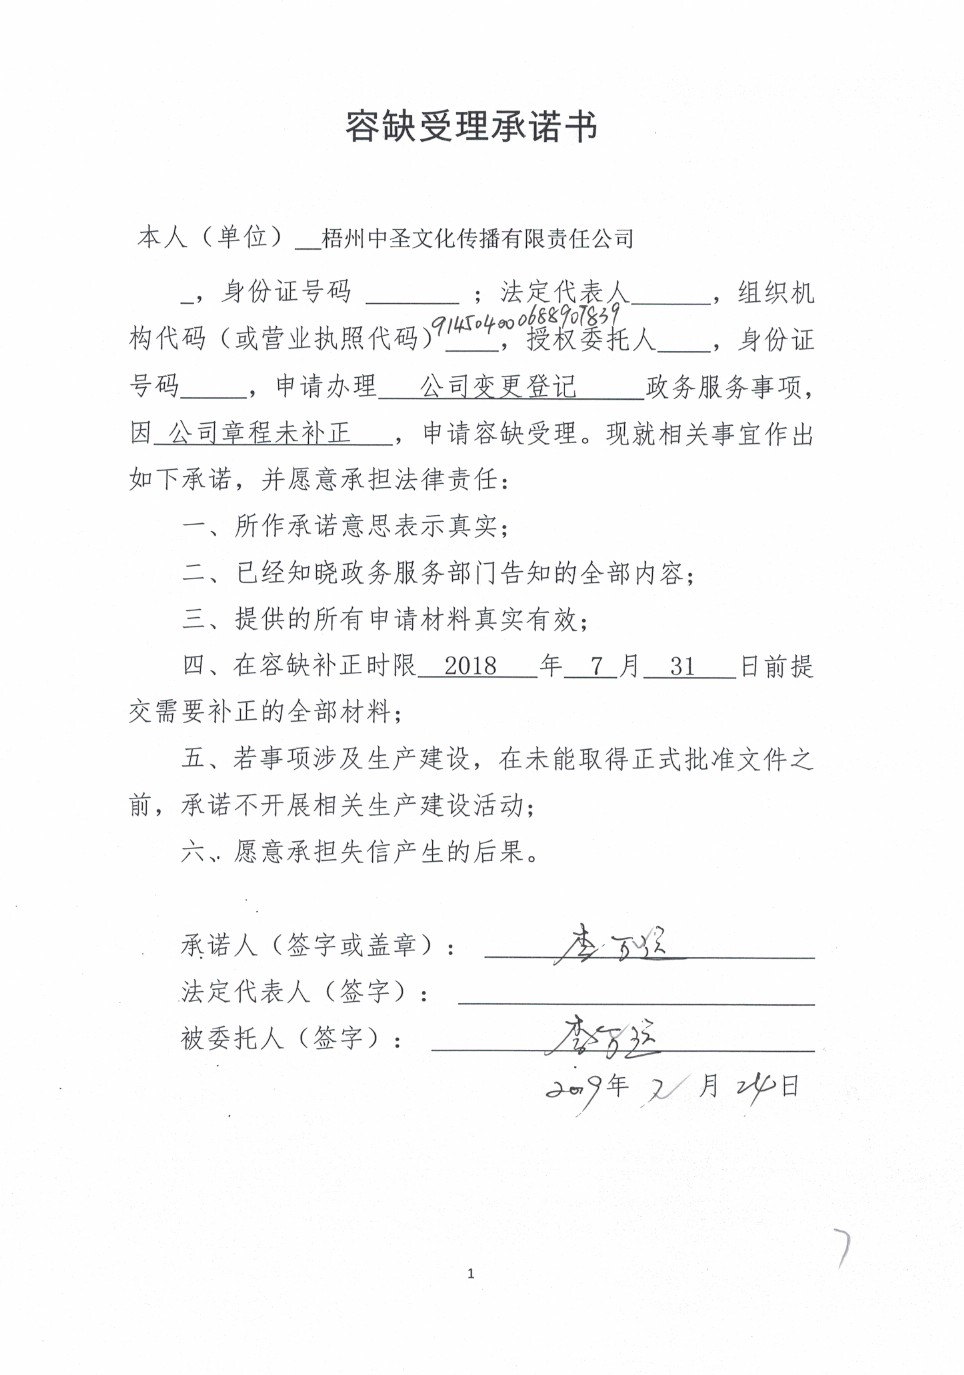 容缺受理承诺书
本人（单位）__梧州中圣文化传播有限责任公司
_，身份证号码 _______ ；法定代表人______，组织机
914504000688907839
构代码（或营业执照代码）____，授权委托人____，身份证
号码_____，申请办理 公司变更登记 政务服务事项，
因 公司章程未补正 ，申请容缺受理。现就相关事宜作出
如下承诺，并愿意承担法律责任：
一、所作承诺意思表示真实；
二、已经知晓政务服务部门告知的全部内容；
三、提供的所有申请材料真实有效；
四、在容缺补正时限 2018 年 7 月 31 日前提
交需要补正的全部材料；
五、若事项涉及生产建设，在未能取得正式批准文件之
前，承诺不开展相关生产建设活动；
六、愿意承担失信产生的后果。
承诺人（签字或盖章）： 李
法定代表人（签字）：
被委托人（签字）： 李
2019年 2 月 24日
7
1